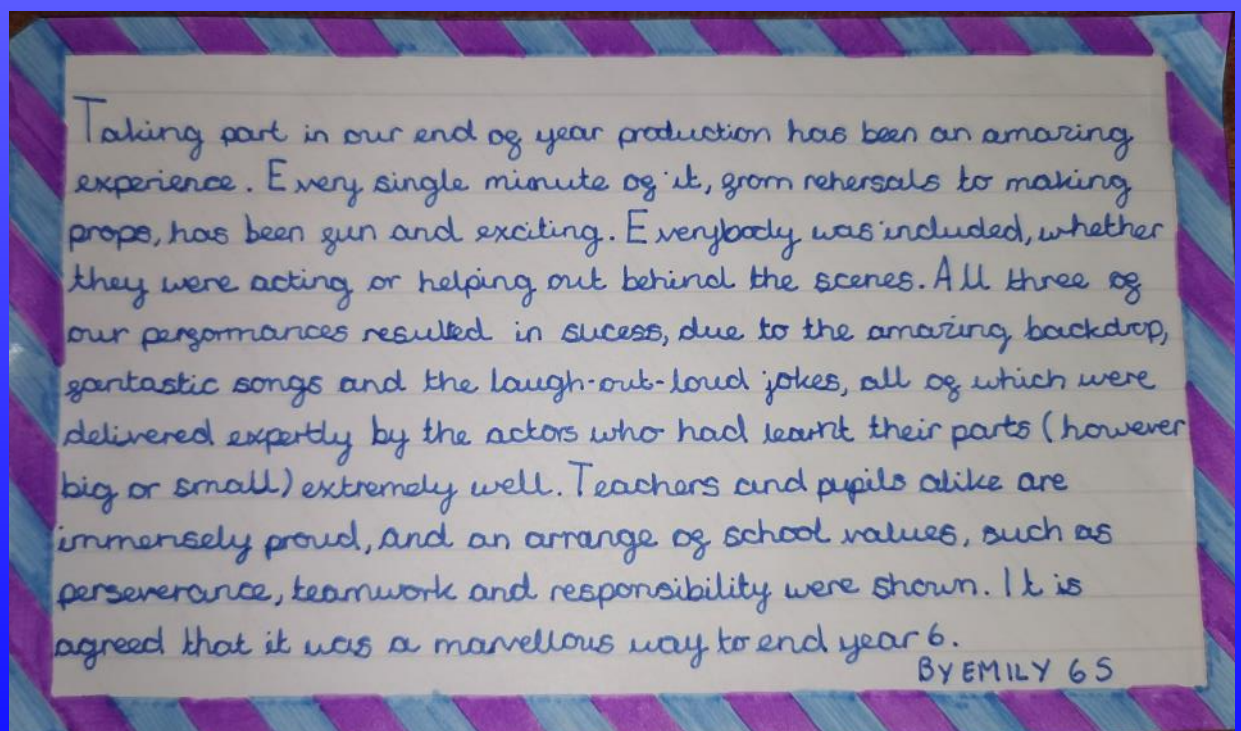 Taking part in our end of year production has been an amazing
experience. Every single minute of it, from rehersals to making
props, has been fun and exciting. Everybody was included, whether
they were acting or helping out behind the scenes. All three of
our performances resulted in sucess, due to the amazing backdrop,
fantastic songs and the laugh-out-loud jokes, all of which were
delivered expertly by the actors who had learnt their parts (however
big or small) extremely well. Teachers and pupils alike are
immensely proud, and an arrange of school values, such as
perseverance, teamwork and responsibility were shown. It is
agreed that it was a marvellous way to end year 6.
BY EMILY 6S